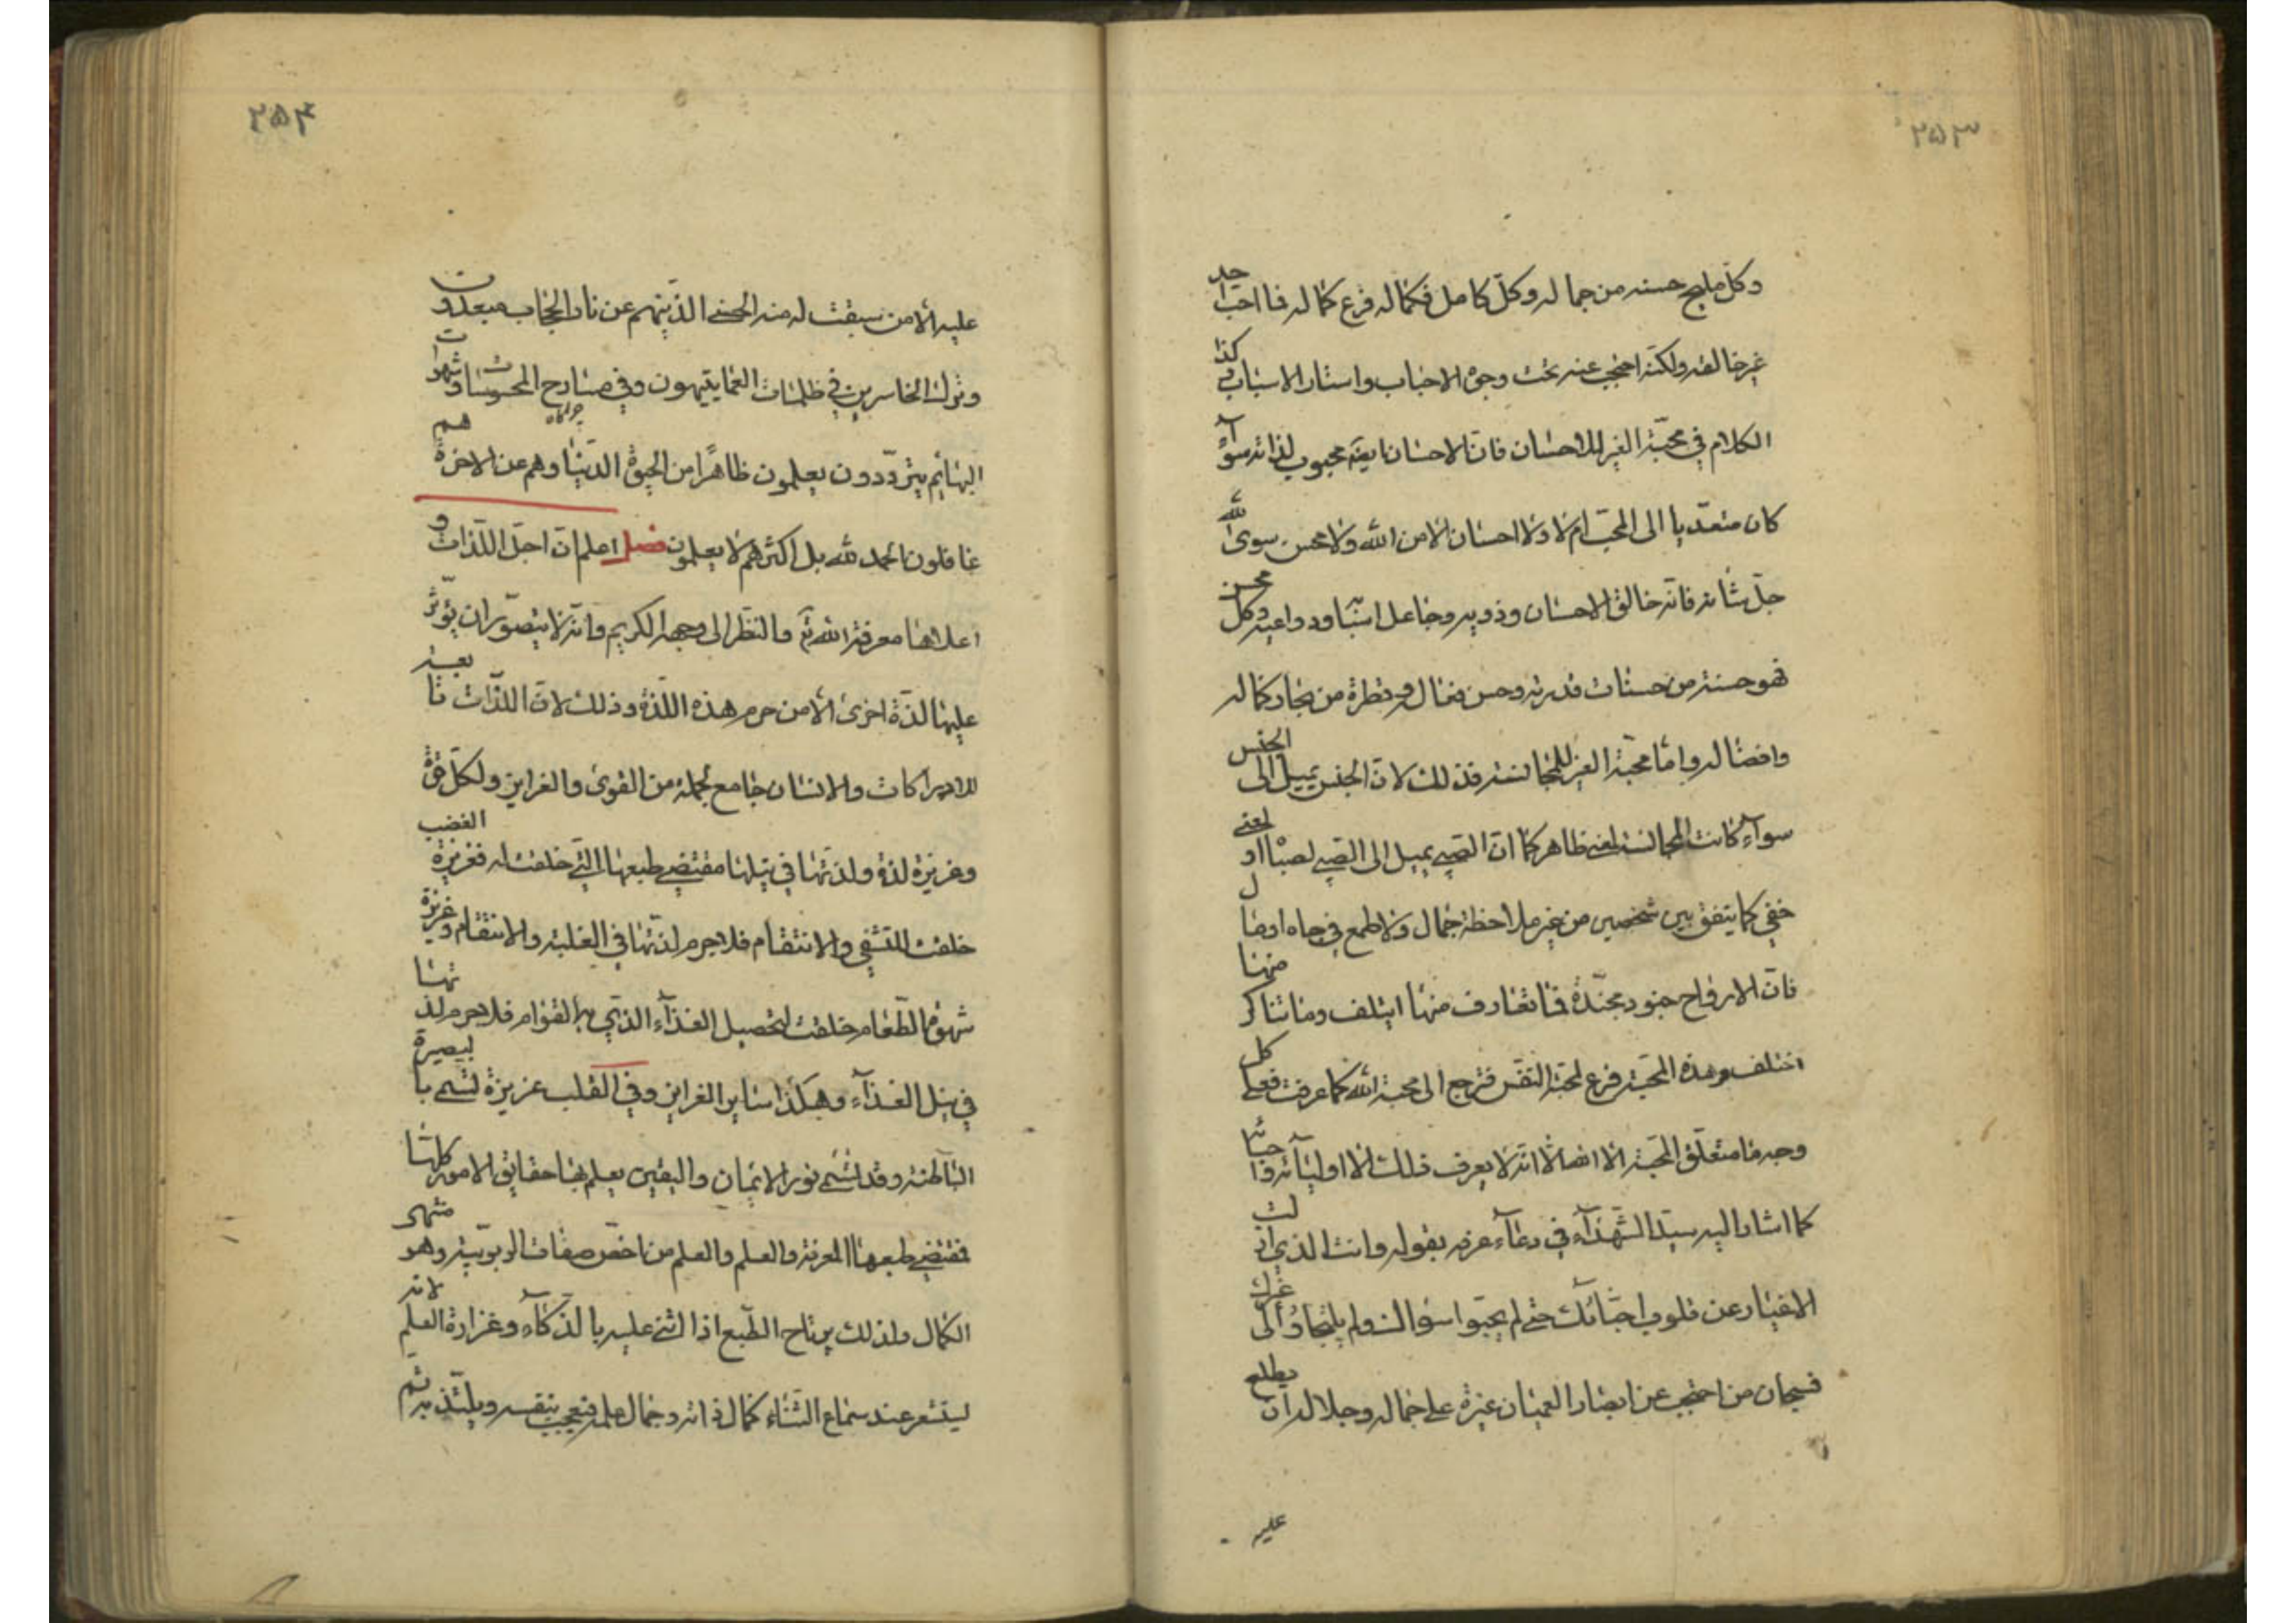 ۲۵۳
وكلّ مليح حسنه من جماله وكلّ كامل فكماله فرع كماله فما احبّ احد
غير خالقه ولكنّه احتجب عنه تحت وجوه الاحباب واستار الاسباب وكذا
الكلام في محبّة الغير للاحسان فانّ الاحسان ايضا محبوب لذاته سوآء
كان متعدّيا الى المحبّ ام لا ولا احسان الّا من الله ولا محسن سوى الله
جلّ شأنه فانّه خالق الاحسان وذويه وجاعل اسبابه ودواعيه وكلّ محسن
فهو حسنة من حسنات قدرته وحسن فعاله وقطرة من بحار كماله
وافضاله وامّا محبّة الغير للمجانسة فذلك لانّ الجنس يميل الى الجنس
سوآء كانت المجانسة لمعنى ظاهر كما انّ الصّبي يميل الى الصّبي لصباه او لمعنى
خفي كما يتفق بين شخصين من غير ملاحظة جمال ولا طمع في جاه او مال
فانّ الارواح جنود مجنّدة فما تعارف منها ايتلف وما تناكر منها
اختلف وهذه المحبّة فرع لمحبّة النّفس فترجع الى محبّة الله كما عرفت فعلى كل
وجه ما متعلّق المحبّة الّا الله الّا انّه لا يعرف ذلك الّا اولياؤه واحبّاؤه
كما اشار اليه سيّد الشّهدآء في دعآء عرفه بقوله وانت الذي ازلت
الاغيار عن قلوب احبّائك حتى لم يحبّوا سواك ولم يلجأوا الى غيرك
فسبحان من احتجب عن ابصار العميان غيرة على جماله وجلاله ان يطلع
عليه
۲۵۴
عليه الّا من سبقت له منه الحسنى الذّينهم عن نار الحجاب مبعدون
وترك الخاسرين في ظلمات العما يتيهون وفي مسارح المحسوسات وشهوات
چراگاه
البهايم يتردّدون يعلمون ظاهرًا من الحيوة الدّنيا وهم عن الاخرة هم
غافلون الحمد لله بل اكثرهم لا يعلمون فصل اعلم انّ اجلّ اللذات و
اعلاها معرفة الله تع والنّظر الى وجهه الكريم وانّه لا يتصوّر ان يؤثر
عليها لذّة اخرى الّا من حرم هذه اللّذة وذلك لانّ اللذّات تابعة
للادراكات والانسان جامع لجملة من القوى والغرايز ولكلّ قوّة
وغريزة لذّة ولذّتها في نيلها مقتضى طبعها الّتي خلقت له فغريزة الغضب
خلقت للتشفي والانتقام فلا جرم لذّتها في الغلبة والانتقام وغريزة
شهوة الطّعام خلقت لتحصيل الغذآء الذّي به القوام فلا جرم لذّتها
في نيل الغذآء وهكذا ساير الغرايز وفي القلب غريزة تسمى بالبصيرة
الباطنة وقد تسمّى نور الايمان واليقين يعلم بها حقايق الامور كلها
فمقتضى طبعها المعرفة والعلم والعلم من اخصّ صفات الرّبوبيّة وهو منتهى
الكمال ولذلك يرتاح الطّبع اذا اثنى عليه بالذكآء وغزارة العلم لانه
يستشعر عند سماع الثّناء كمال ذاته وجمال علمه فيعجب بنفسه ويلتذّ به ثم